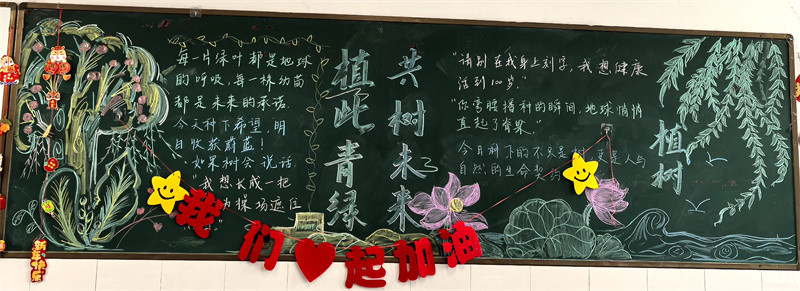 每一片绿叶都是地球
的呼吸,每一株幼苗
都是未来的承诺。
今天种下希望,明
日收获蔚蓝!
"如果树会说话:
"我想长成一把
为操场遮住
植此青绿
共树未来
"请别在我身上刻字,我想健康
活到100岁。"
"你弯腰播种的瞬间,地球悄悄
直起了脊梁。"
今日种下的不只是树,更是人与
自然的生命契约
植树
我们起加油
新年快乐